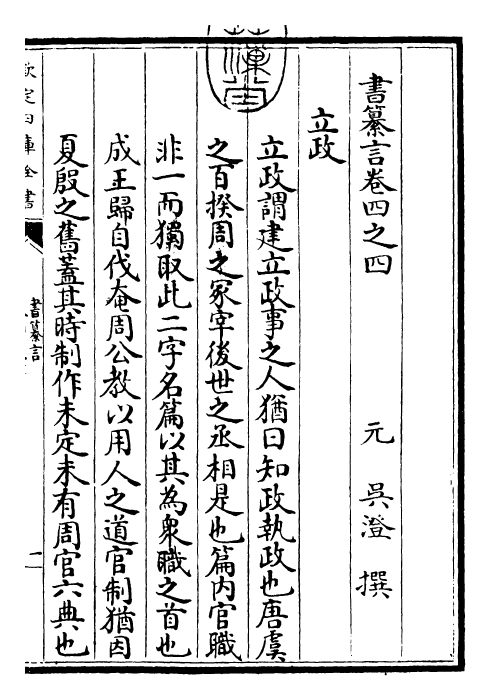 書纂言卷四之四
元 吳澄 撰
立政
立政謂建立政事之人猶曰知政執政也唐虞
之百揆周之冢宰後世之丞相是也篇内官職
非一而獨取此二字名篇以其為衆職之首也
成王歸自伐奄周公教以用人之道官制猶因
夏殷之舊蓋其時制作未定未有周官六典也
欽定四庫全書
書纂言